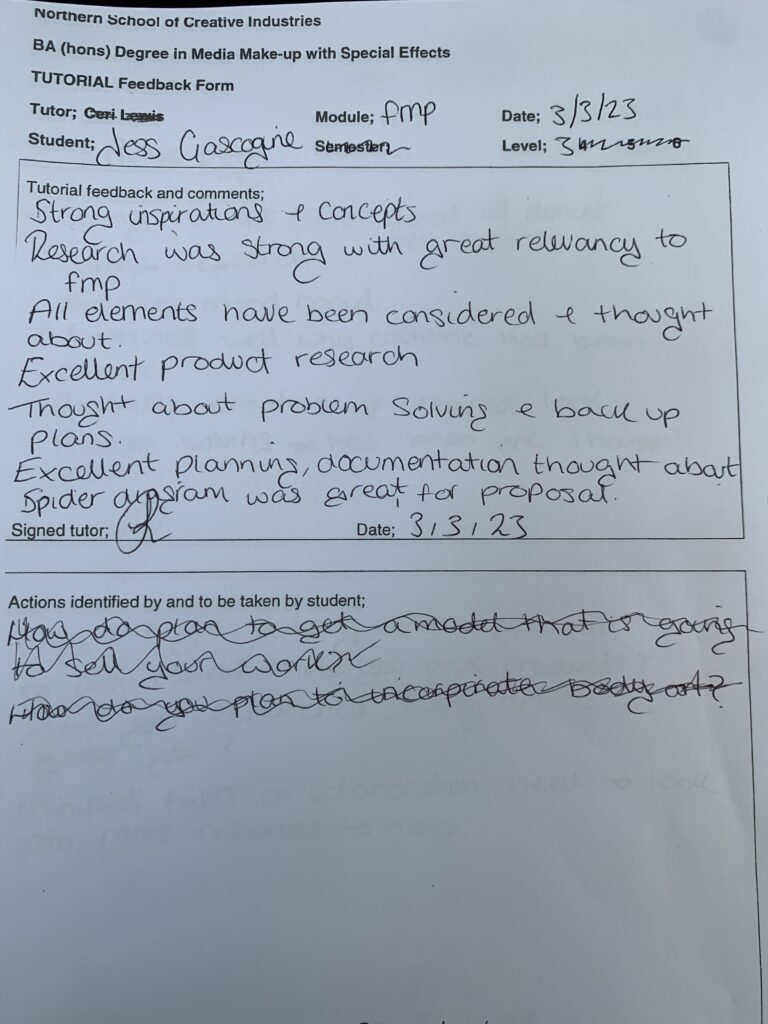 Northern School of Creative Industries
BA (hons) Degree in Media Make-up with Special Effects
TUTORIAL Feedback Form
Tutor; Ceri Lewis Module; fmp Date; 3/3/23
Student; Jess Gascogne Semester; Level; 3
Tutorial feedback and comments;
Strong inspirations & concepts
Research was strong with great relevancy to
fmp
All elements have been considered & thought
about.
Excellent product research
Thought about problem solving & back up
plans.
Excellent planning, documentation thought about
Spider diagram was great for proposal.
Signed tutor; Date; 3/3/23
Actions identified by and to be taken by student;
How do plan to get a model that is going
to sell your work
How do you plan to incorperate body art?